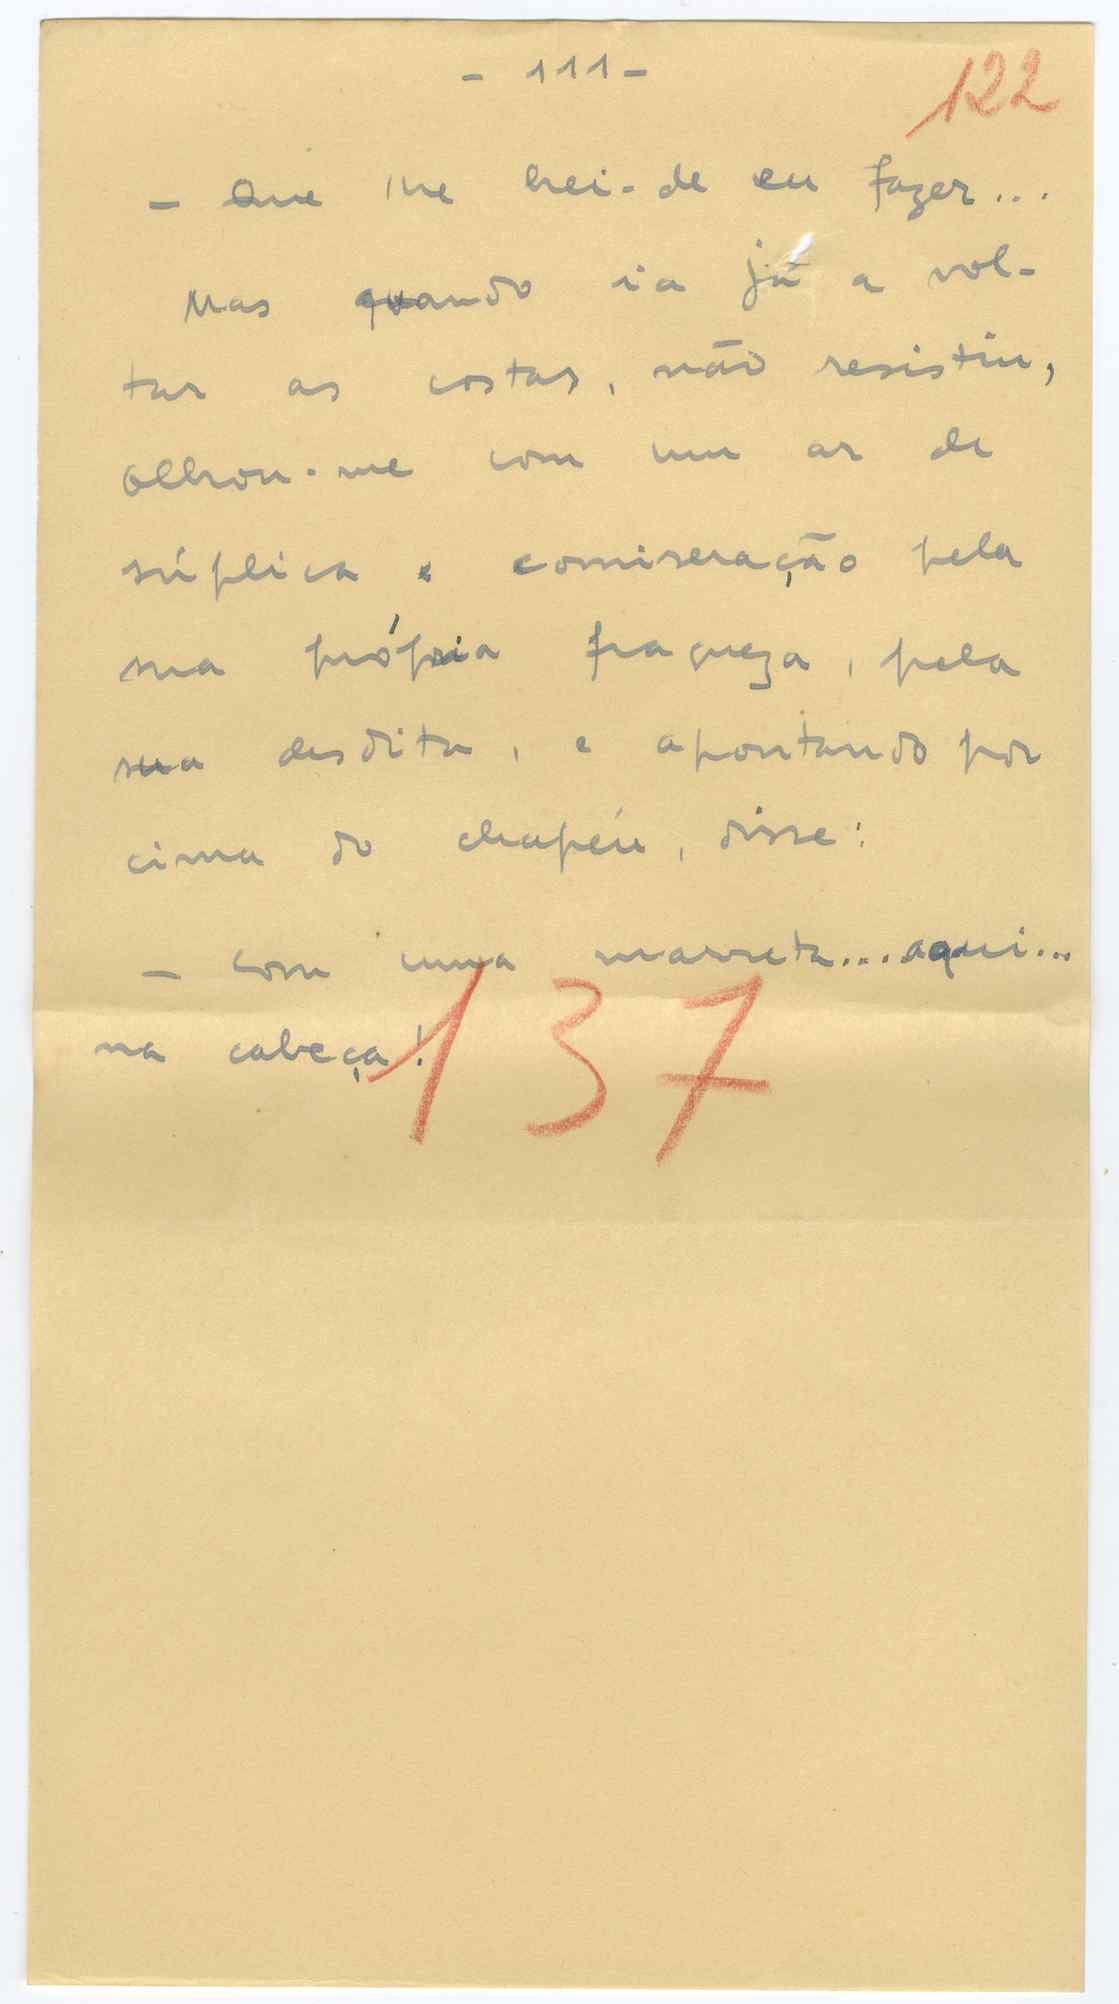 - 111 -
122
- Que lhe hei-de eu fazer...
Mas quando ia já a vol-
tar as costas, não resistiu,
olhou-me com um ar de
súplica e comiseração pela
sua própria fraqueza, pela
sua desdita, e apontando por
cima do chapéu, disse:
- com uma marreta... aqui...
na cabeça!
137